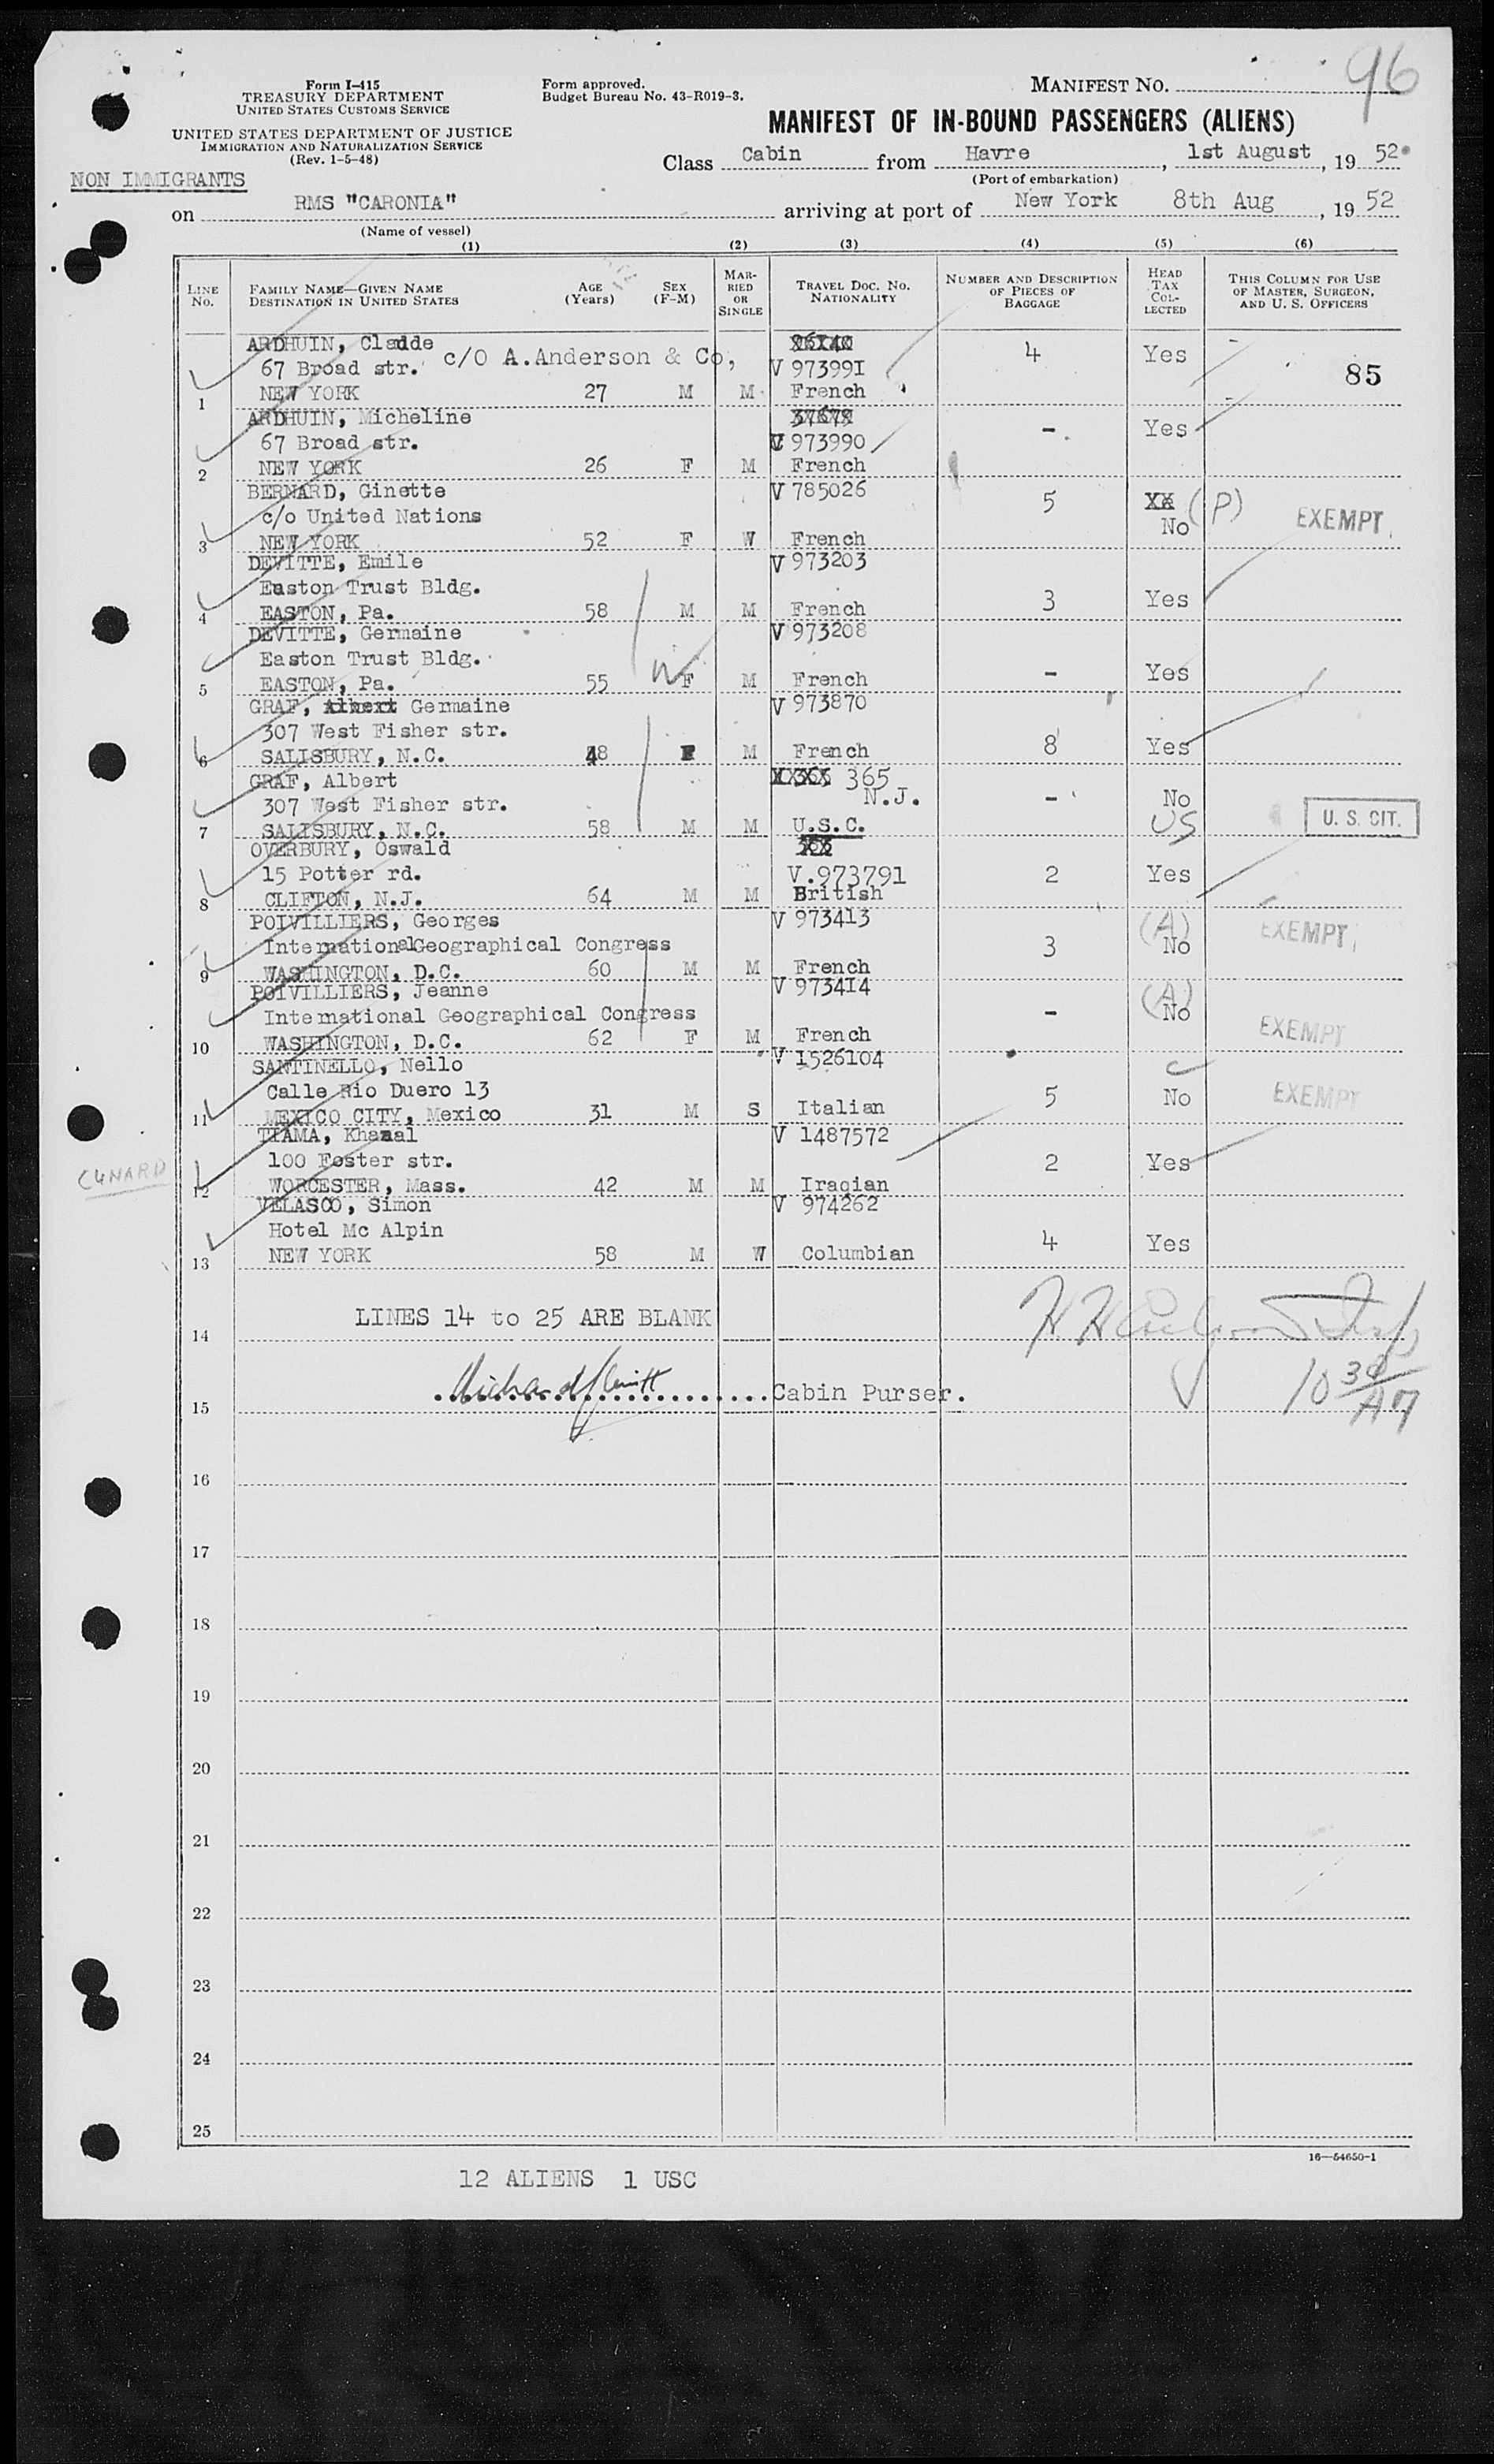 Form I-415
TREASURY DEPARTMENT
UNITED STATES CUSTOMS SERVICE
UNITED STATES DEPARTMENT OF JUSTICE
IMMIGRATION AND NATURALIZATION SERVICE
(Rev. 1-5-48)
Form approved.
Budget Bureau No. 43-R019-3.
MANIFEST NO. 96
MANIFEST OF IN-BOUND PASSENGERS (ALIENS)
Class Cabin from Havre, 1st August, 19 52
(Port of embarkation)
NON IMMIGRANTS
on RMS "CARONIA" arriving at port of New York 8th Aug, 19 52
(Name of vessel)
(1) (2) (3) (4) (5) (6)
LINE No. FAMILY NAME—GIVEN NAME DESTINATION IN UNITED STATES AGE (Years) SEX (F-M) MARRIED OR SINGLE TRAVEL DOC. NO. NATIONALITY NUMBER AND DESCRIPTION OF PIECES OF BAGGAGE HEAD TAX COLLECTED THIS COLUMN FOR USE OF MASTER, SURGEON, AND U. S. OFFICERS
ARDHUIN, Cladde
67 Broad str. c/O A.Anderson & Co, V 973991 4 Yes 85
1 NEW YORK 27 M M French
ARDHUIN, Micheline
67 Broad str. V 973990 - Yes
2 NEW YORK 26 F M French
BERNARD, Ginette V 785026
c/o United Nations 5 No (P) EXEMPT
3 NEW YORK 52 F W French
DEVITTE, Emile V 973203
Easton Trust Bldg. 3 Yes
4 EASTON, Pa. 58 M M French
DEVITTE, Germaine V 973208
Easton Trust Bldg. - Yes
5 EASTON, Pa. 55 F M French
GRAF, Albert Germaine V 973870
307 West Fisher str. 8 Yes
6 SALISBURY, N.C. 48 F M French
GRAF, Albert 365
307 West Fisher str. N.J. - No
7 SALISBURY, N.C. 58 M M U.S.C. US U. S. CIT.
OVERBURY, Oswald
15 Potter rd. V.973791 2 Yes
8 CLIFTON, N.J. 64 M M British
POIVILLIERS, Georges V 973413 (A)
International Geographical Congress 3 No EXEMPT
9 WASHINGTON, D.C. 60 M M French
POIVILLIERS, Jeanne V 973414 (A)
International Geographical Congress - No
10 WASHINGTON, D.C. 62 F M French EXEMPT
SANTINELLO, Nello V 1526104
Calle Rio Duero 13 5 No EXEMPT
11 MEXICO CITY, Mexico 31 M S Italian
TIAMA, Khazal V 1487572
100 Foster str. 2 Yes
CUNARD
12 WORCESTER, Mass. 42 M M Iraqian
VELASCO, Simon V 974262
Hotel Mc Alpin 4 Yes
13 NEW YORK 58 M W Columbian
LINES 14 to 25 ARE BLANK
14
Cabin Purser. 10 30/AM
15
16
17
18
19
20
21
22
23
24
25
16—54650-1
12 ALIENS 1 USC